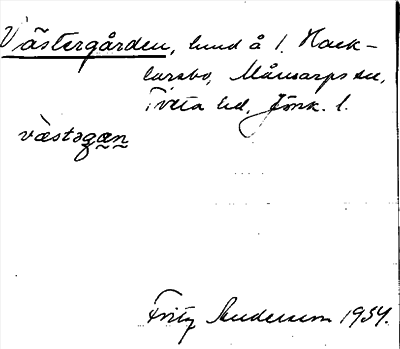 Västergården, lund å 1 Hack-
larebo, Månsarps sn,
Tveta hd, Jönk. l.
västəgæn
Fritz Anderson 1954.